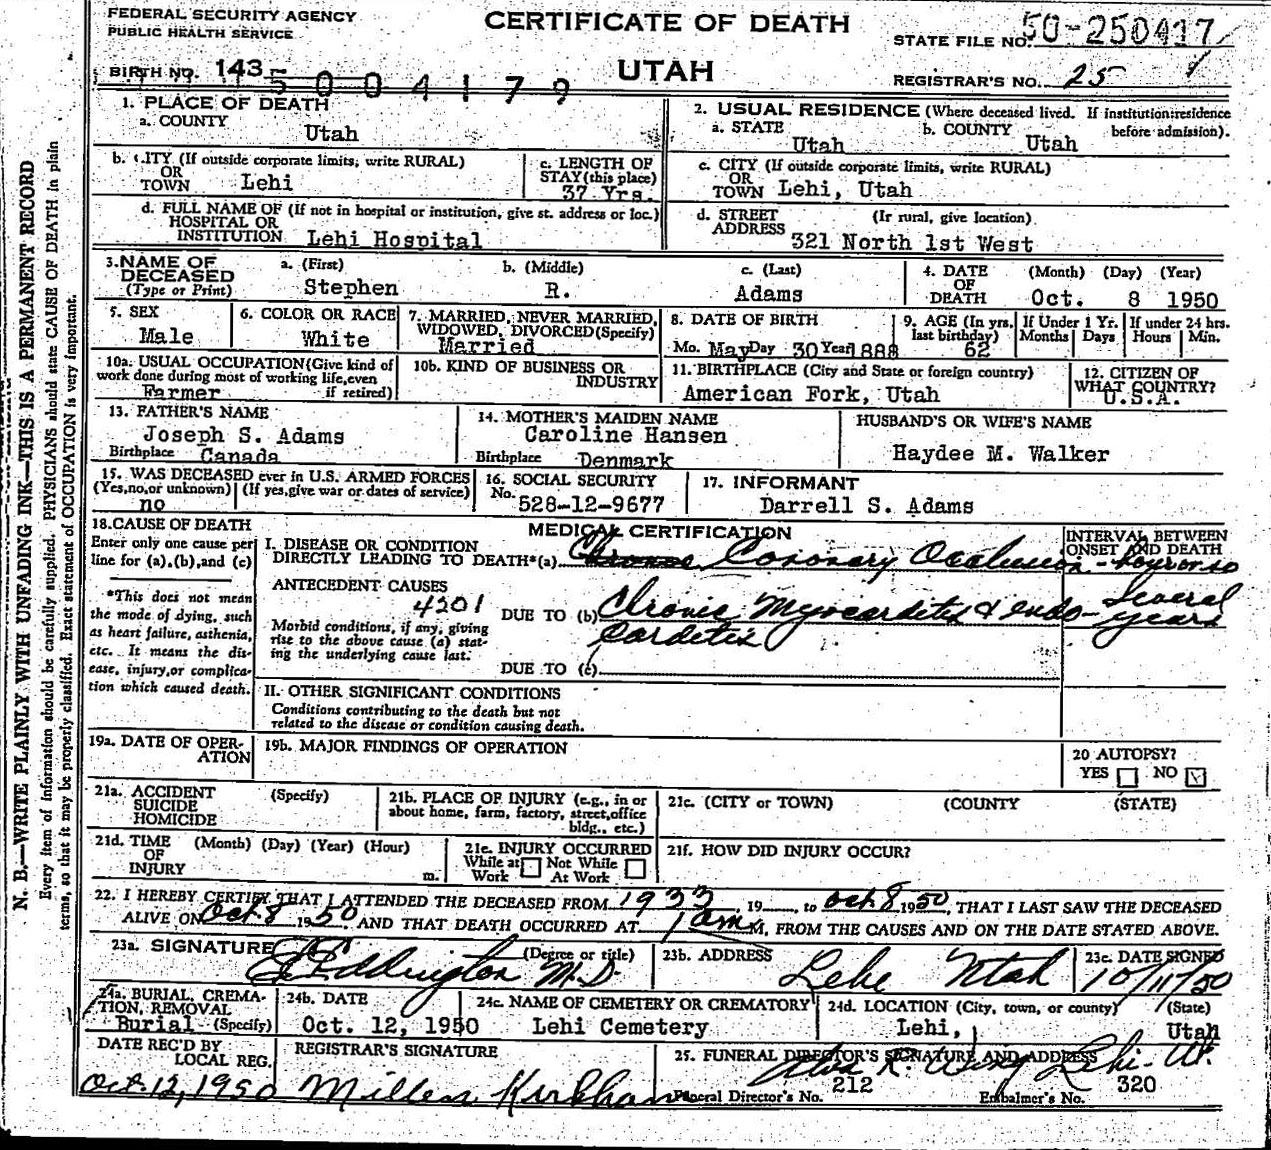 FEDERAL SECURITY AGENCY
PUBLIC HEALTH SERVICE
CERTIFICATE OF DEATH
STATE FILE NO. 50-250417
BIRTH NO. 143
UTAH
REGISTRAR'S NO. 25
5004179
1. PLACE OF DEATH
a. COUNTY
Utah
2. USUAL RESIDENCE (Where deceased lived. If institution:residence before admission).
a. STATE Utah b. COUNTY Utah
b. CITY (If outside corporate limits, write RURAL)
OR
TOWN Lehi
c. LENGTH OF STAY (this place)
37 Yrs.
c. CITY (If outside corporate limits, write RURAL)
OR
TOWN Lehi, Utah
d. FULL NAME OF (If not in hospital or institution, give st. address or loc.)
HOSPITAL OR
INSTITUTION Lehi Hospital
d. STREET ADDRESS (If rural, give location)
321 North 1st West
3. NAME OF DECEASED (Type or Print)
a. (First) Stephen b. (Middle) R. c. (Last) Adams
4. DATE OF DEATH (Month) (Day) (Year)
Oct. 8 1950
5. SEX
Male
6. COLOR OR RACE
White
7. MARRIED, NEVER MARRIED, WIDOWED, DIVORCED (Specify)
Married
8. DATE OF BIRTH
Mo. May Day 30 Year 1888
9. AGE (In yrs. last birthday) 62
If Under 1 Yr. Months Days
If under 24 hrs. Hours Min.
10a. USUAL OCCUPATION (Give kind of work done during most of working life, even if retired)
Farmer
10b. KIND OF BUSINESS OR INDUSTRY
11. BIRTHPLACE (City and State or foreign country)
American Fork, Utah
12. CITIZEN OF WHAT COUNTRY?
U.S.A.
13. FATHER'S NAME
Joseph S. Adams
Birthplace Canada
14. MOTHER'S MAIDEN NAME
Caroline Hansen
Birthplace Denmark
HUSBAND'S OR WIFE'S NAME
Haydee M. Walker
15. WAS DECEASED ever in U.S. ARMED FORCES
(Yes,no,or unknown) (If yes,give war or dates of service)
no
16. SOCIAL SECURITY
No. 528-12-9677
17. INFORMANT
Darrell S. Adams
18. CAUSE OF DEATH
Enter only one cause per line for (a),(b),and (c)
*This does not mean the mode of dying, such as heart failure, asthenia, etc. It means the disease, injury,or complication which caused death.
MEDICAL CERTIFICATION
I. DISEASE OR CONDITION
DIRECTLY LEADING TO DEATH*(a) Chronic Coronary Occlusion
INTERVAL BETWEEN ONSET AND DEATH
hour or so
ANTECEDENT CAUSES
4201
DUE TO (b) Chronic Myocarditis & endo-
carditis
Several years
Morbid conditions, if any, giving rise to the above cause (a) stating the underlying cause last.
DUE TO (c)
II. OTHER SIGNIFICANT CONDITIONS
Conditions contributing to the death but not related to the disease or condition causing death.
19a. DATE OF OPERATION
19b. MAJOR FINDINGS OF OPERATION
20 AUTOPSY?
YES ☐ NO ☑
21a. ACCIDENT SUICIDE HOMICIDE (Specify)
21b. PLACE OF INJURY (e.g., in or about home, farm, factory, street,office bldg., etc.)
21c. (CITY or TOWN) (COUNTY (STATE)
21d. TIME OF INJURY (Month) (Day) (Year) (Hour) m.
21e. INJURY OCCURRED
While at Work ☐ Not While At Work ☐
21f. HOW DID INJURY OCCUR?
22. I HEREBY CERTIFY THAT I ATTENDED THE DECEASED FROM 1933, 19__, to Oct 8, 1950, THAT I LAST SAW THE DECEASED
ALIVE ON Oct 8 1950, AND THAT DEATH OCCURRED AT 1 am M, FROM THE CAUSES AND ON THE DATE STATED ABOVE.
23a. SIGNATURE (Degree or title)
Eddington M.D.
23b. ADDRESS
Lehi Utah
23c. DATE SIGNED
10/11/50
24a. BURIAL, CREMATION, REMOVAL
Burial (Specify)
24b. DATE
Oct. 12, 1950
24c. NAME OF CEMETERY OR CREMATORY
Lehi Cemetery
24d. LOCATION (City, town, or county) (State)
Lehi, Utah
DATE REC'D BY LOCAL REG.
Oct. 12, 1950
REGISTRAR'S SIGNATURE
Kirkham
25. FUNERAL DIRECTOR'S SIGNATURE AND ADDRESS
Alva R. Wing Lehi - Ut.
212 320
Funeral Director's No. Embalmer's No.
N. B.—WRITE PLAINLY WITH UNFADING INK—THIS IS A PERMANENT RECORD
Every item of information should be carefully supplied. PHYSICIANS should state CAUSE OF DEATH in plain
terms, so that it may be properly classified. Exact statement of OCCUPATION is very important.